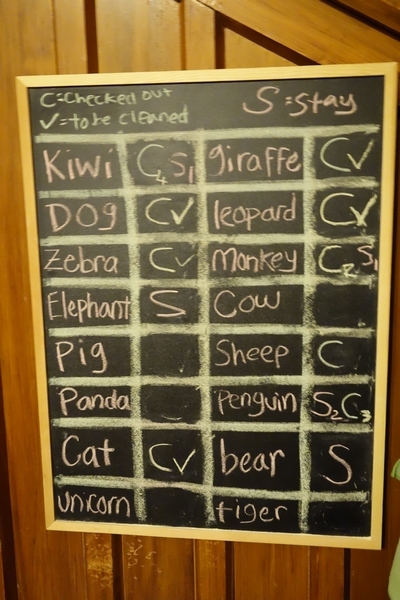 C=Checked out S=Stay
✓=to be cleaned
Kiwi C4 S1 giraffe C✓
DOG C✓ leopard C✓
Zebra C✓ Monkey C2 S1
Elephant S Cow
Pig Sheep C
Panda Penguin S2C3
Cat C✓ bear S
unicorn tiger